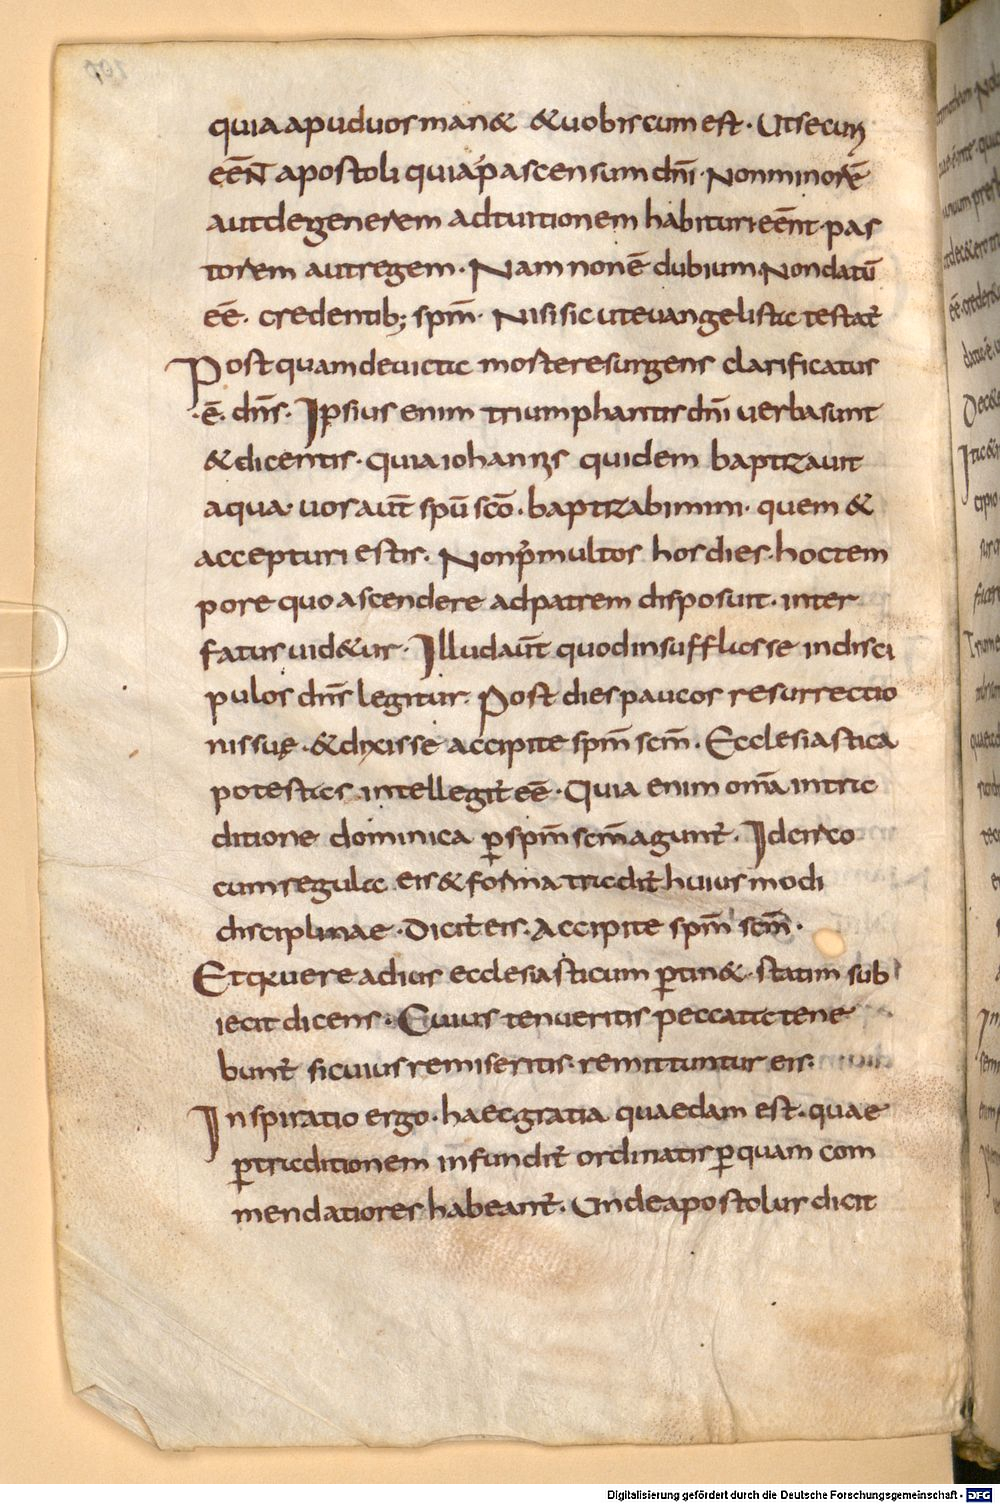 quia apud uos man& & uobiscum est · Ut secuꝝ
eēNT apostoli quia p̄ ascensum dn̄i · Non minorē
aut degenerem ad tuitionem habituri eēnt · pas
torem aut regem · Nam non ē dubium · Non datū
eē · credentib; sp̄m · Nisi sic ut euangelista testat̄
Postquam deuicta morte resurgens clarificatus
· ē · dn̄s · Ipsius enim triumphantis dn̄i uerba sunt
& dicentis · quia iohannes quidem baptizauit
aqua · uos aut̄ spū scō · baptizabimini · quem &
accepturi estis · Non p̄ multos hos dies · hoc tem
pore quo ascendere ad patrem disposuit · inter
fatus uid&ur · Illud aut̄ quod insufflasse in disci
pulos dn̄s legitur · Post dies paucos resurrectio
nis suę · & dixisse accipite sp̄m scm̄ · Ecclesiastica
potestas intellegit̄ eē · Quia enim om̄a in tra
ditione dominica ꝑ sp̄m scm̄ agunt̄ · Idcirco
cum regula eis & forma tradit̄ huius modi
disciplinae · Dicit̄ eis · Accipite sp̄m scm̄ ·
Et quere ad ius ecclesiasticum ꝑtin& · statim sub
iecit dicens · Cuius tenueritis peccata tene
bunt̄ si cuius remiseritis · remittuntur eis ·
Inspiratio ergo · haec gratia quaedam est · quae
ꝑ traditionem infundit̄ ordinatis ꝑ quam com
mendatiores habeant̄ · Unde apostolus dicit
Digitalisierung gefördert durch die Deutsche Forschungsgemeinschaft - DFG